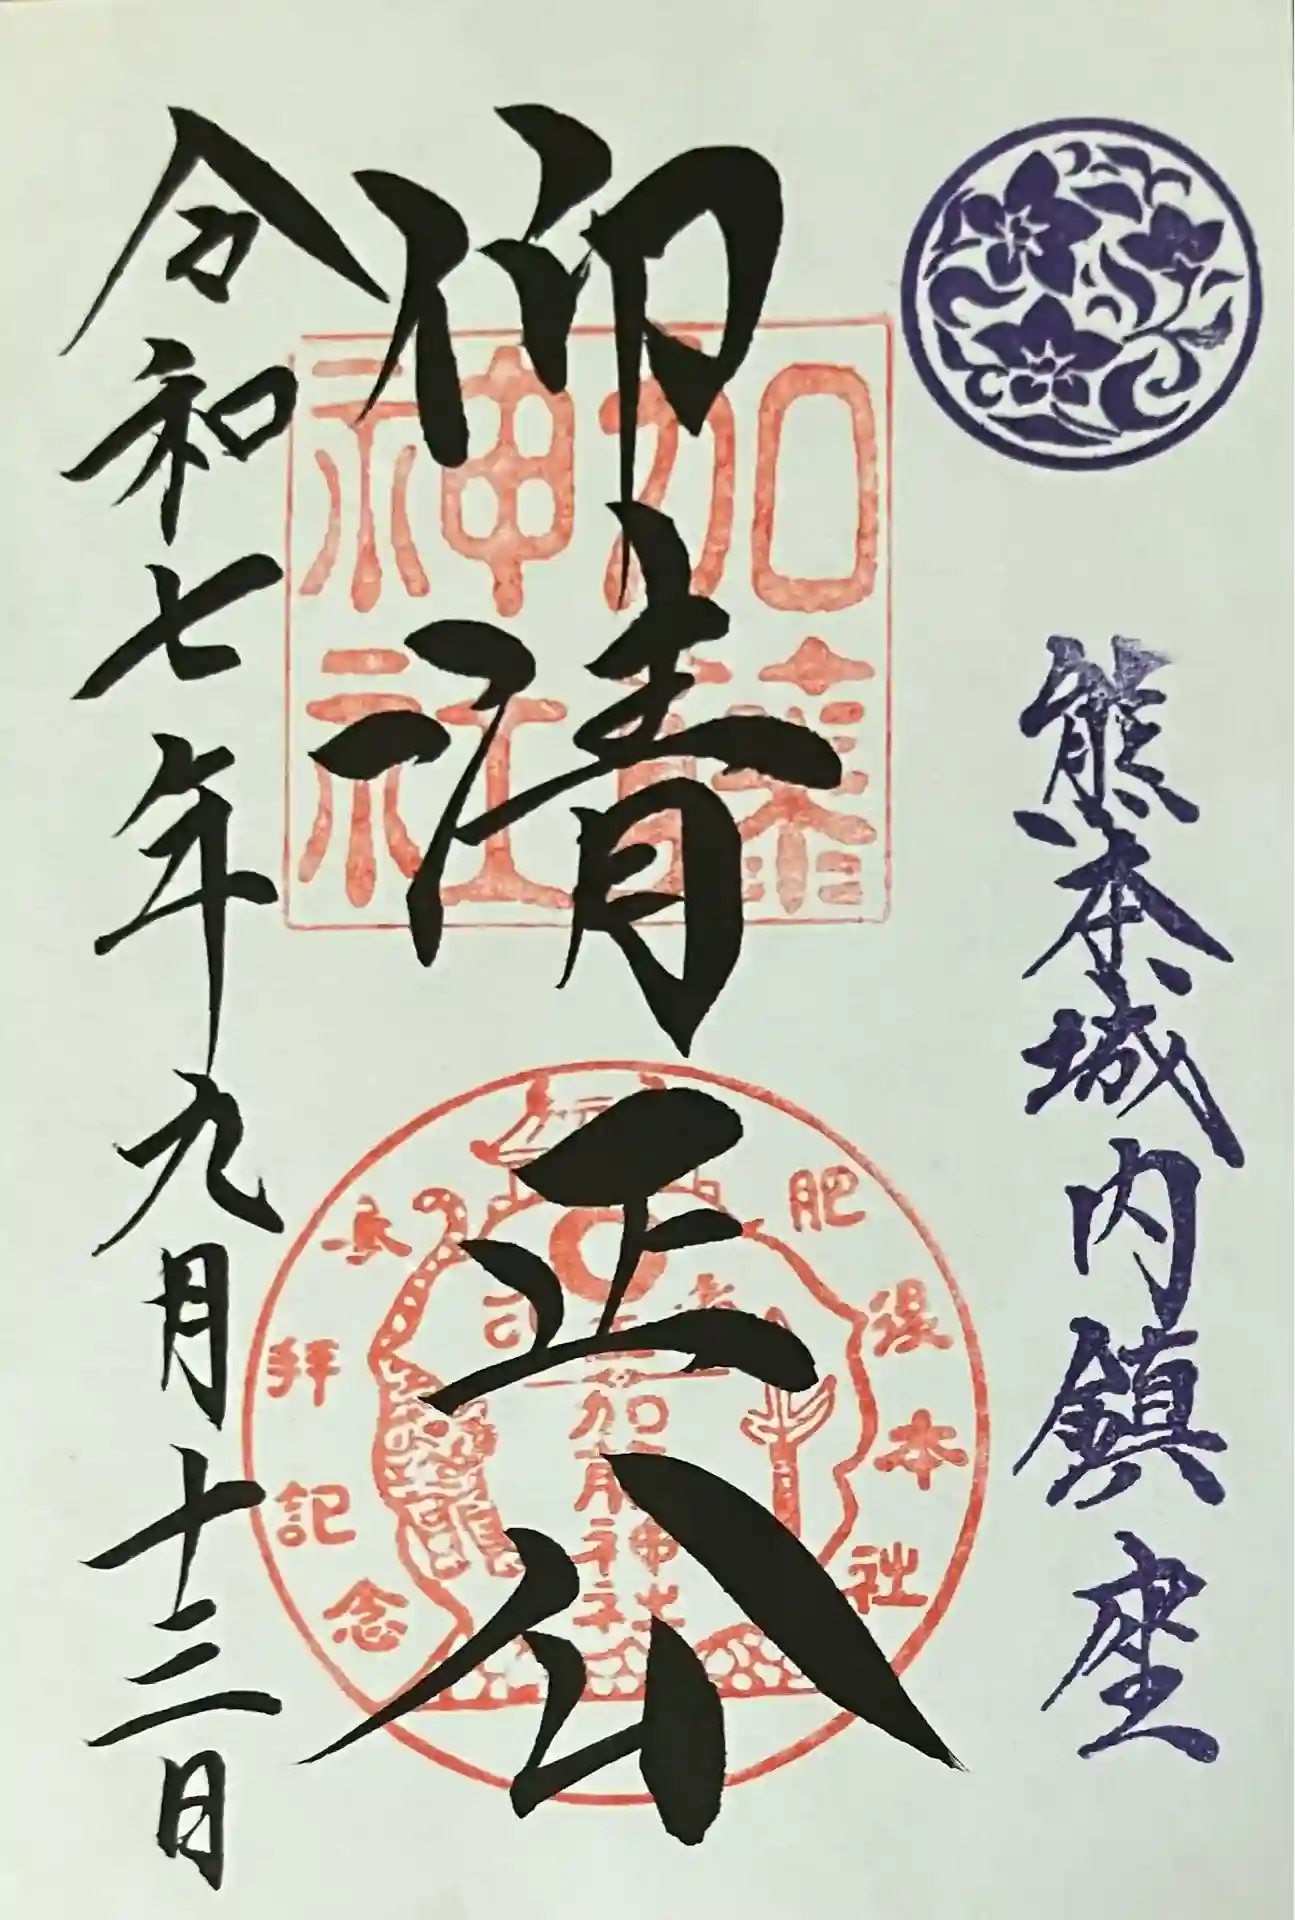 熊本城内鎮座
仰清正公
加藤
神社
令和七年九月十三日
肥後本社
参拝記念
加藤神社